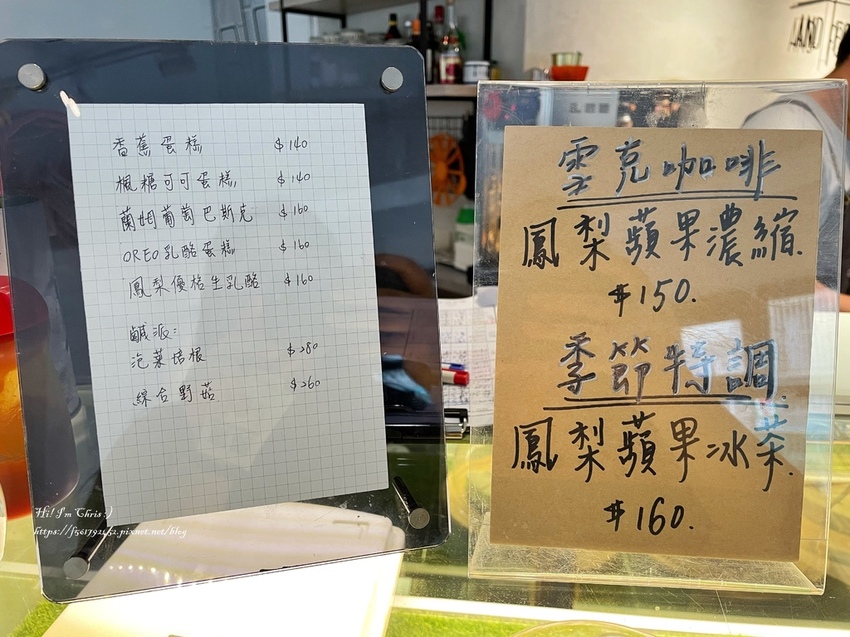 香蕉蛋糕 $140
楓糖可可蛋糕 $140
蘭姆葡萄巴斯克 $160
OREO乳酪蛋糕 $160
鳳梨優格生乳酪 $160
鹹派:
泡菜培根 $280
綜合野菇 $260
雲克咖啡
鳳梨蘋果濃縮.
$150.
季節特調
鳳梨蘋果冰茶.
$160.
Hi! I'm Chris :)